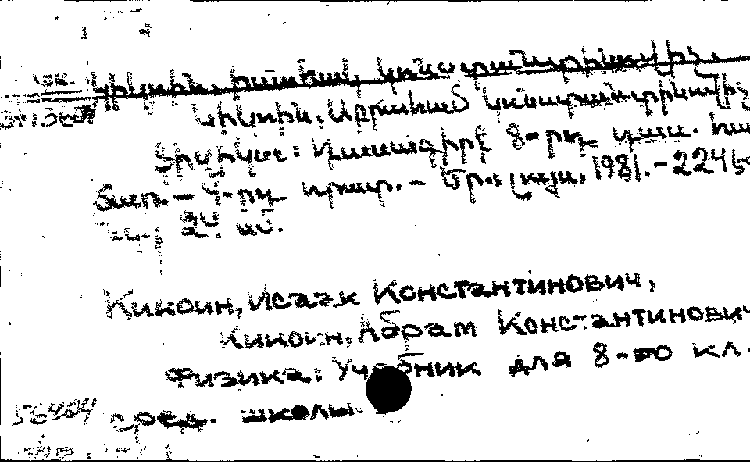 Կիկոին, Իսահակ Կոնստանտինովիչ,
Կիկոին, Աբրահամ Կոնստանտինովիչ
Ֆիզիկա: Դասագիրք 8-րդ դաս. հա
Տար.— 4-րդ հրատ.— Եր.: Լույս, 1981.— 224
24 սմ.
Кикоин, Исаак Константинович,
Кикоин, Абрам Константинович
Физика: Учебник для 8-го кл.
56404 сред. школы.